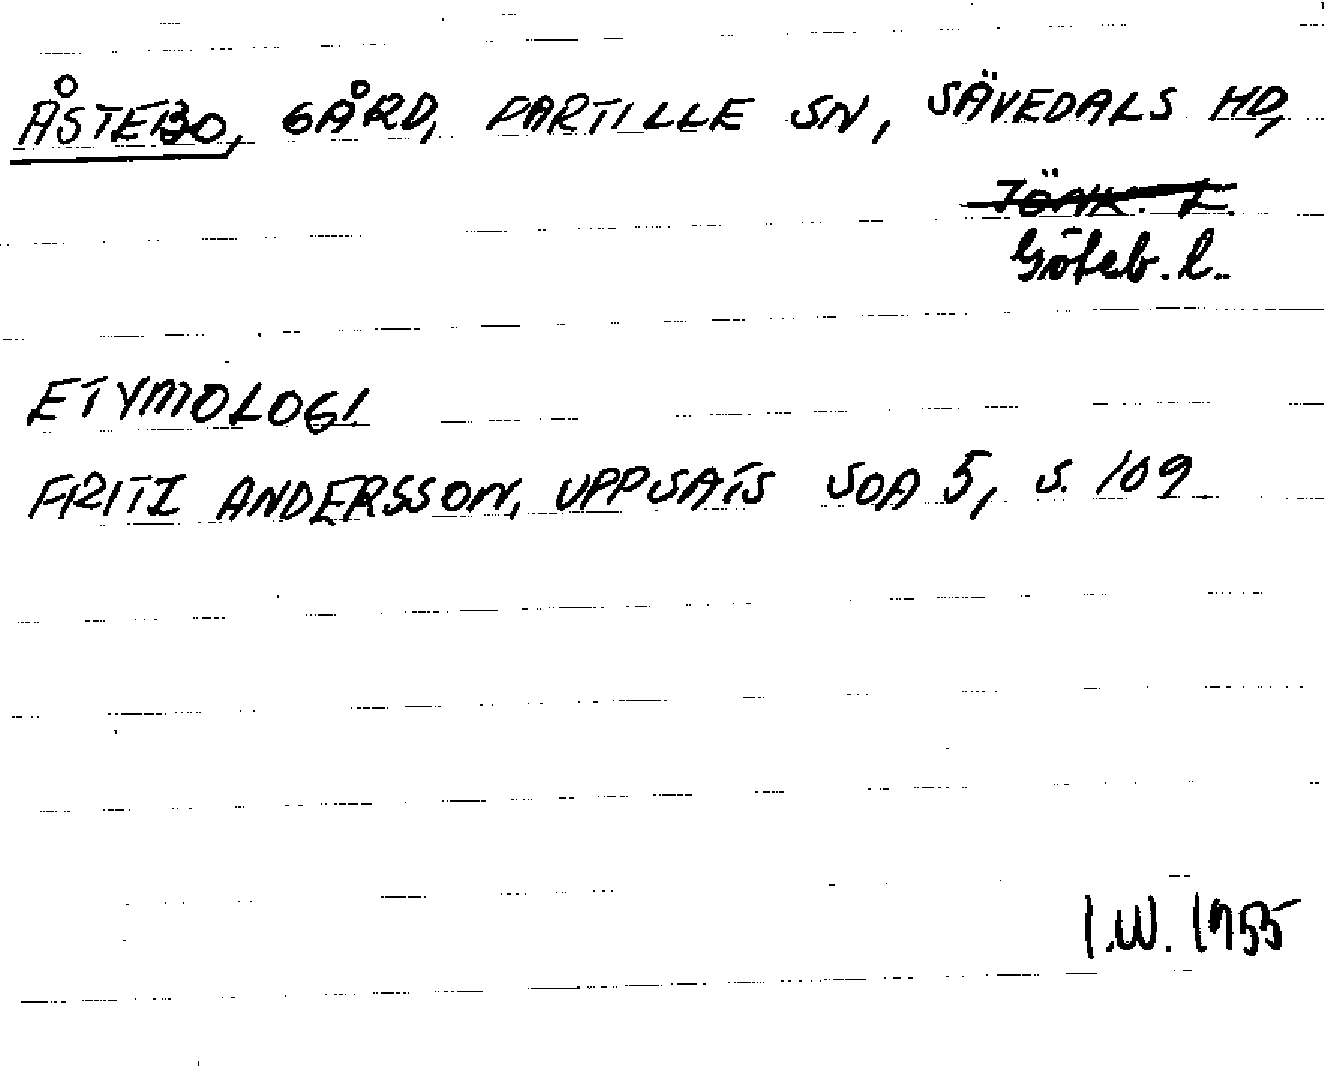 ÅSTEBO, GÅRD, PARTILLE SN, SÄVEDALS HD,
JÖNK. L.
Göteb. l.
ETYMOLOGI
FRITZ ANDERSSON, UPPSATS SOA 5, S. 109
I.W. 1955